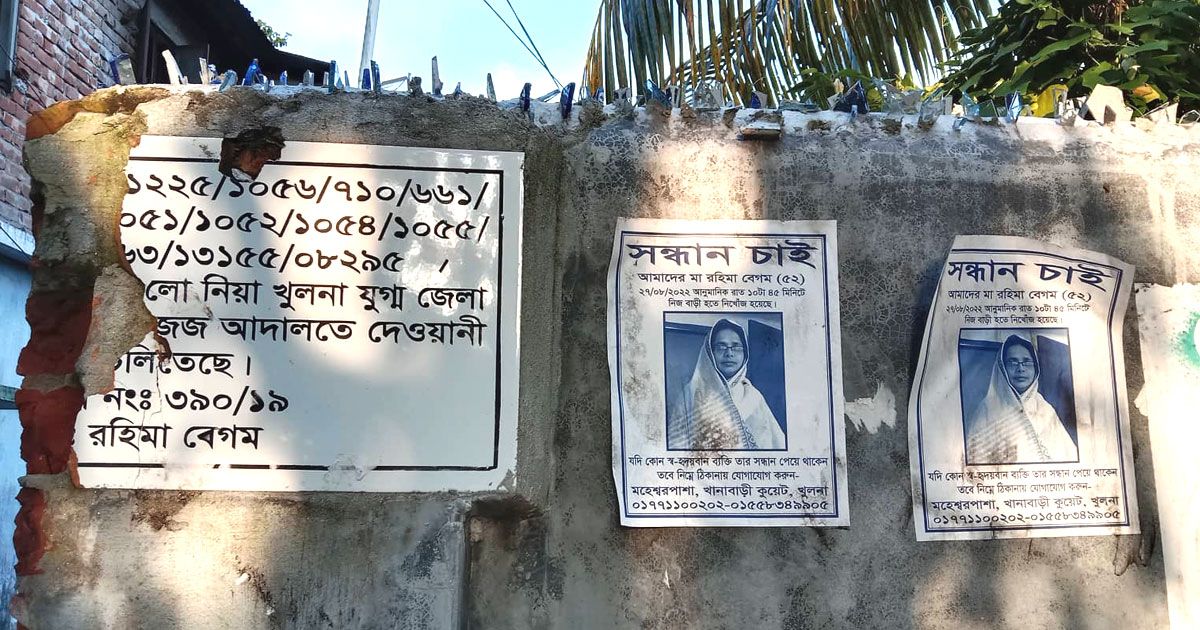 ১২২৫/১০৫৬/৭১০/৬৬১/
০৫১/১০৫২/১০৫৪/১০৫৫/
৬৩/১৩১৫৫/০৮২৯৫ /
লো নিয়া খুলনা যুগ্ম জেলা
জজ আদালতে দেওয়ানী
চলিতেছে।
নংঃ ৩৯০/১৯
রহিমা বেগম
সন্ধান চাই
আমাদের মা রহিমা বেগম (৫২)
২৭/০৮/২০২২ আনুমানিক রাত ১০টা ৪৫ মিনিটে
নিজ বাড়ী হতে নিখোঁজ হয়েছে।
যদি কোন স্ব-হৃদয়বান ব্যক্তি তার সন্ধান পেয়ে থাকেন
তবে নিম্নে ঠিকানায় যোগাযোগ করুন-
মহেশ্বরপাশা, খানাবাড়ী কুয়েট, খুলনা
০১৭৭১১০০২০২-০১৫৫৮৩৪৯৯০৫
সন্ধান চাই
আমাদের মা রহিমা বেগম (৫২)
২৭/০৮/২০২২ আনুমানিক রাত ১০টা ৪৫ মিনিটে
নিজ বাড়ী হতে নিখোঁজ হয়েছে।
যদি কোন স্ব-হৃদয়বান ব্যক্তি তার সন্ধান পেয়ে থাকেন
তবে নিম্নে ঠিকানায় যোগাযোগ করুন-
মহেশ্বরপাশা, খানাবাড়ী কুয়েট, খুলনা
০১৭৭১১০০২০২-০১৫৫৮৩৪৯৯০৫